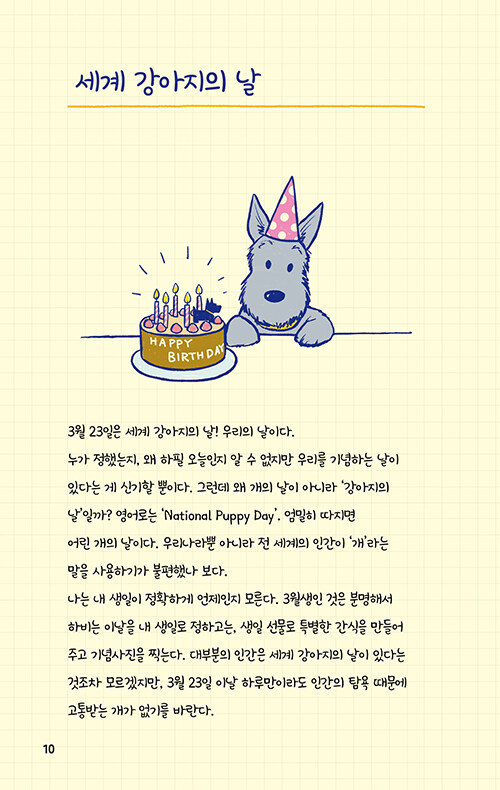 세계 강아지의 날
HAPPY
BIRTHDAY
3월 23일은 세계 강아지의 날! 우리의 날이다.
누가 정했는지, 왜 하필 오늘인지 알 수 없지만 우리를 기념하는 날이
있다는 게 신기할 뿐이다. 그런데 왜 개의 날이 아니라 ‘강아지의
날’일까? 영어로는 ‘National Puppy Day’. 엄밀히 따지면
어린 개의 날이다. 우리나라뿐 아니라 전 세계의 인간이 ‘개’라는
말을 사용하기가 불편했나 보다.
나는 내 생일이 정확하게 언제인지 모른다. 3월생인 것은 분명해서
하비는 이날을 내 생일로 정하고는, 생일 선물로 특별한 간식을 만들어
주고 기념사진을 찍는다. 대부분의 인간은 세계 강아지의 날이 있다는
것조차 모르겠지만, 3월 23일 이날 하루만이라도 인간의 탐욕 때문에
고통받는 개가 없기를 바란다.
10